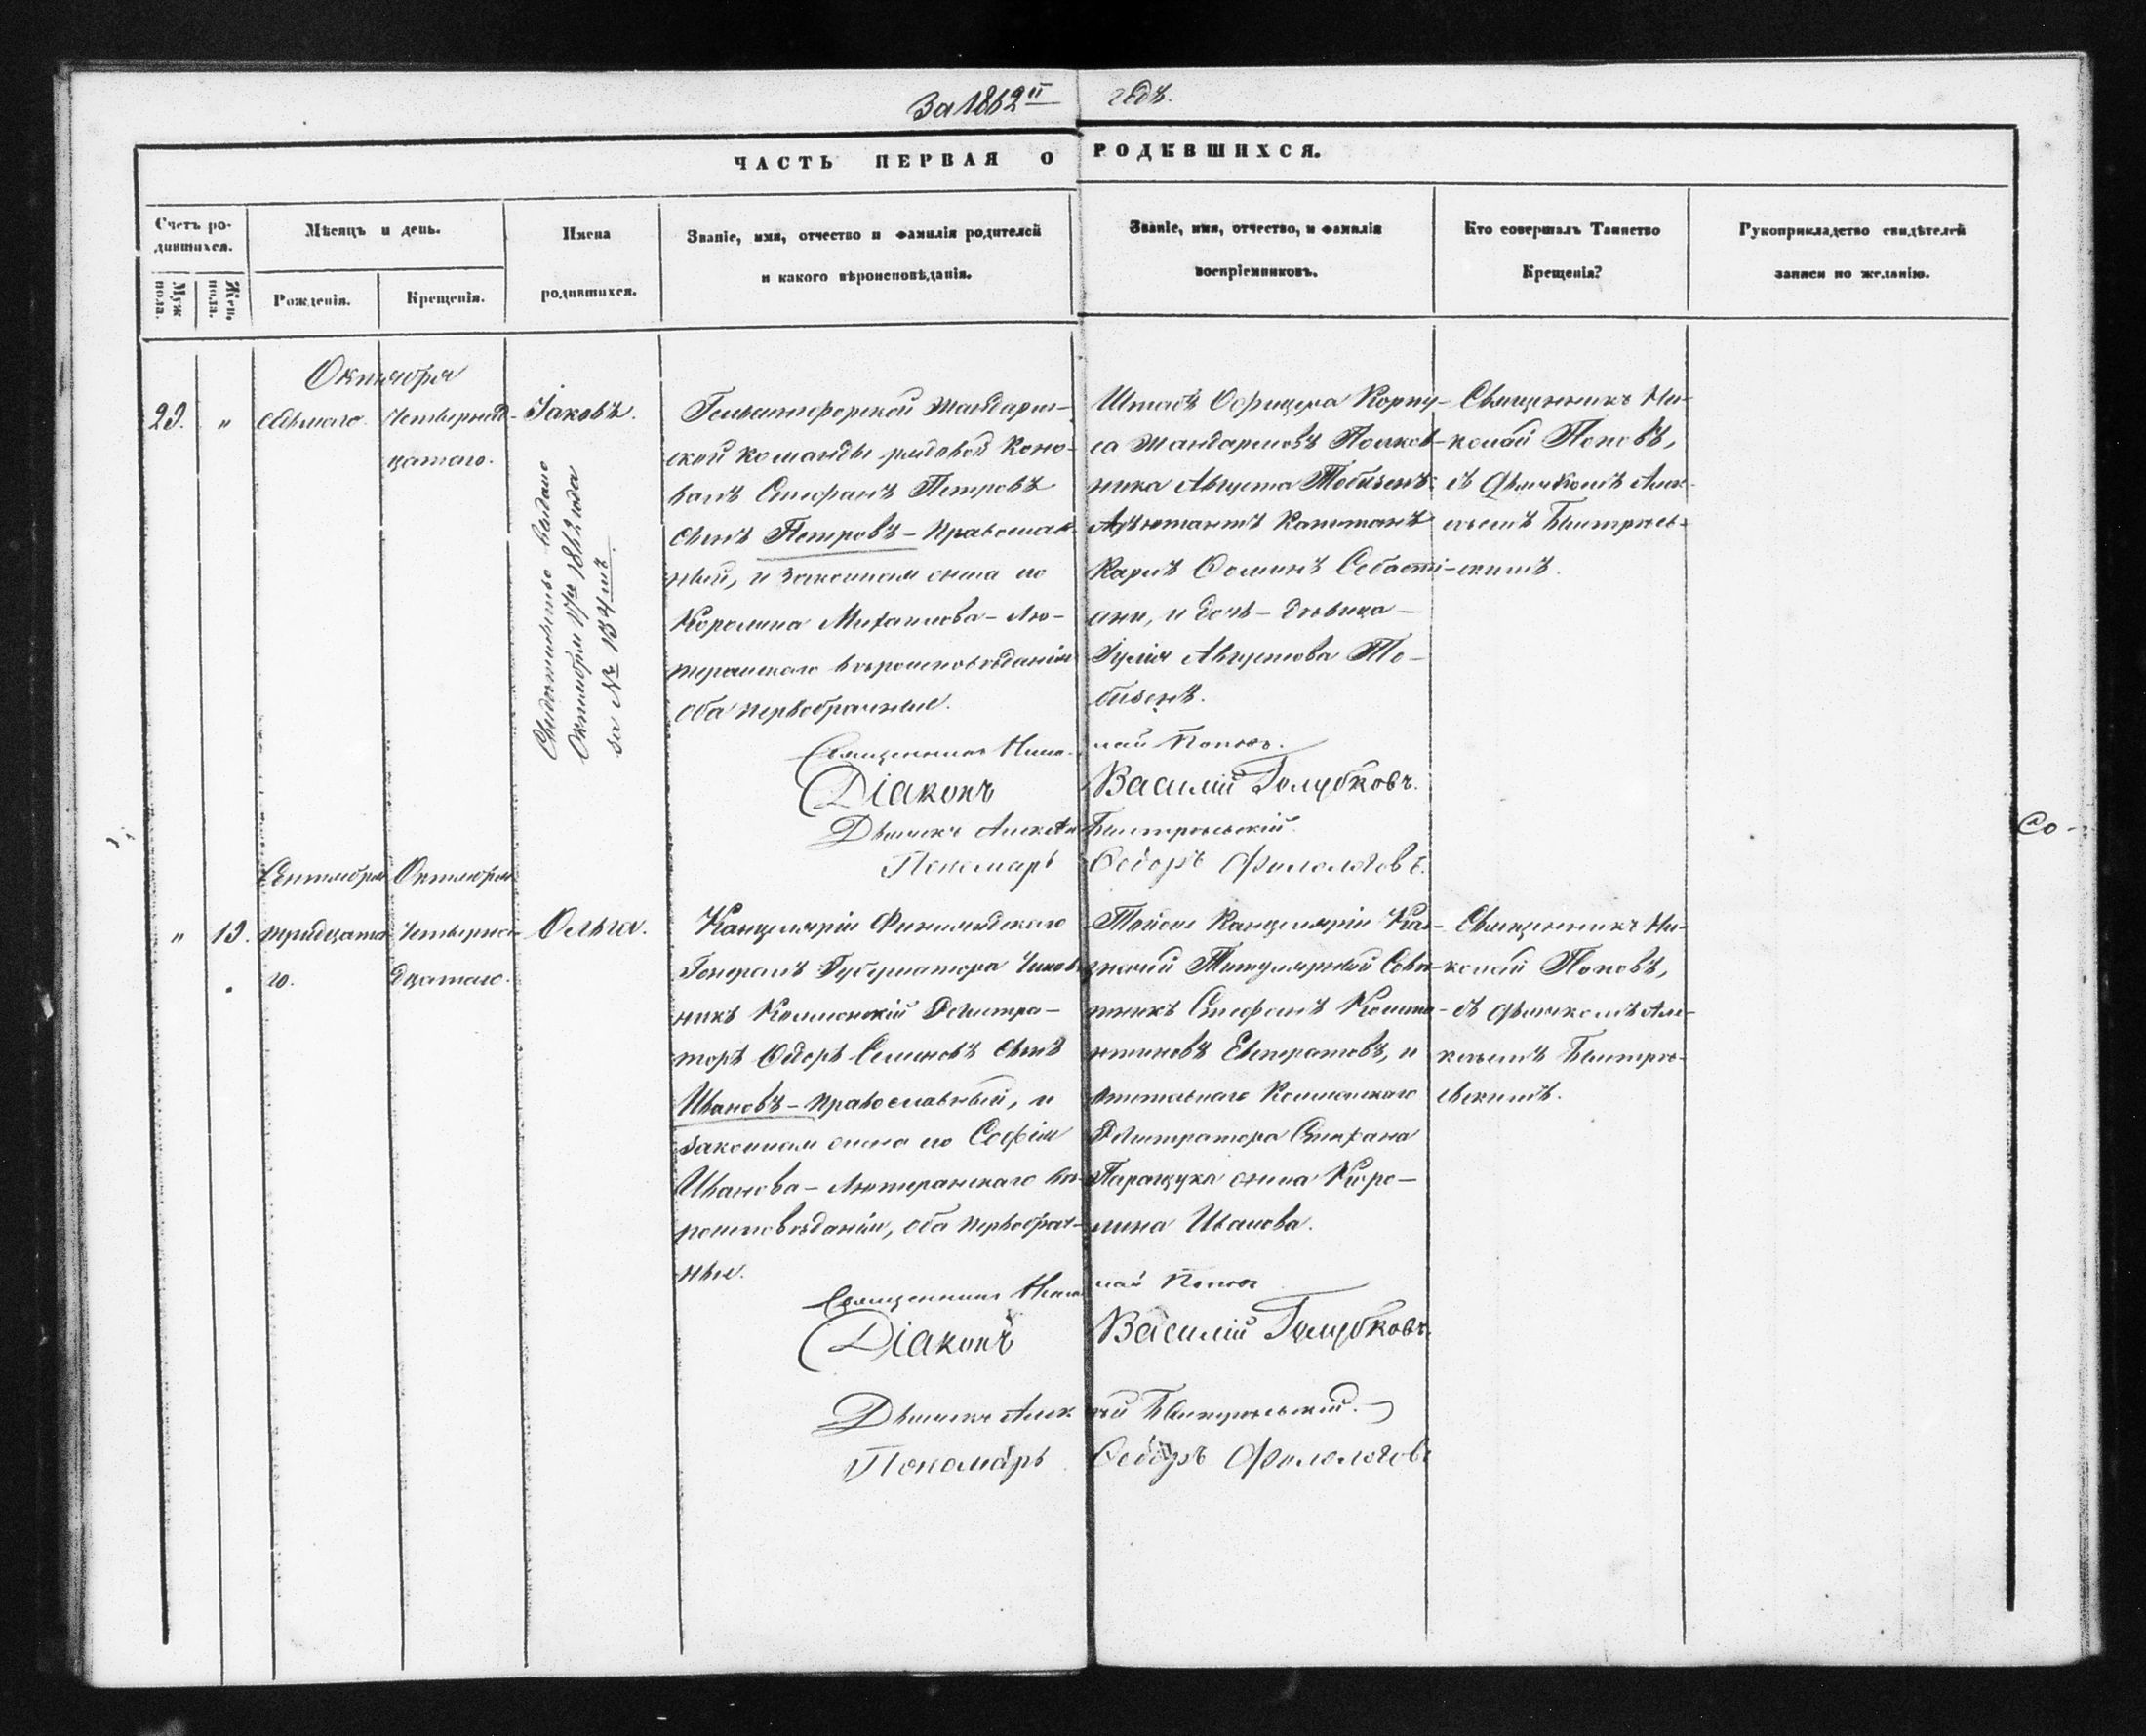 За 1862й годъ.
ЧАСТЬ ПЕРВАЯ О РОДИВШИХСЯ.
Счетъ родившихся.
Муж пола.
Жен. пола.
Мѣсяцъ и день.
Рожденія.
Крещенія.
Имена
родившихся.
Званіе, имя, отчество и фамилія родителей
и какого вѣроисповѣданія.
Званіе, имя, отчество, и фамилія
воспріемниковъ.
Кто совершалъ Таинство
Крещенія?
Рукоприкладство свидѣтелей
записи по желанію.
Октября
29.
"
седьмаго.
Четырнад-
цатаго.
Іаковъ.
Свидѣтельство выдано
Октября 17го 1862 года
за № 134мъ.
Гельсингфорской Жандарм-
ской команды рядовой Коно-
валъ Стефанъ Петровъ
сынъ Петровъ - Православ-
ный, и законная жена его
Каролина Михаилова - Лю-
теранскаго вѣроисповѣданія
оба первобрачные.
Штабъ Офицера Корпу-
са Жандармовъ Полков-
ника Августа Тобизенъ
Адъютантъ Капитанъ
Карлъ Осиповъ Себасті-
ани, и дочь - дѣвица
Іулія Августова То-
бизенъ.
Священникъ Ни-
колай Поповъ,
съ дьячкомъ Алек-
сѣемъ Быстриев-
скимъ.
Священникъ Николай Поповъ.
Діаконъ Василій Голубковъ.
Дьячекъ Алексѣй Быстриевскій.
Пономарь Ѳедоръ Филологовъ.
Сентября
Октября
"
19.
тридцата-
го.
Четырна-
дцатаго.
Ольга.
Канцеляріи Финляндскаго
Генералъ Губернатора Чинов-
никъ Коллежскій Регистра-
торъ Ѳедоръ Семеновъ сынъ
Ивановъ - православный, и
законная жена его Софія
Иванова - Лютеранскаго вѣ-
роисповѣданія, оба первобрач-
ные.
Тойже Канцеляріи Каз-
начей Титулярный Совѣ-
тникъ Стефанъ Конста-
нтиновъ Евстратовъ, и
отставнаго Коллежскаго
Регистратора Стефана
Паращука жена Каро-
лина Иванова.
Священникъ Ни-
колай Поповъ,
съ дьячкомъ Але-
ксѣемъ Быстрі-
евскимъ.
Священникъ Николай Поповъ
Діаконъ Василій Голубковъ.
Дьячекъ Алексѣй Быстриевскій.
Пономарь Ѳедоръ Филологовъ
Со-